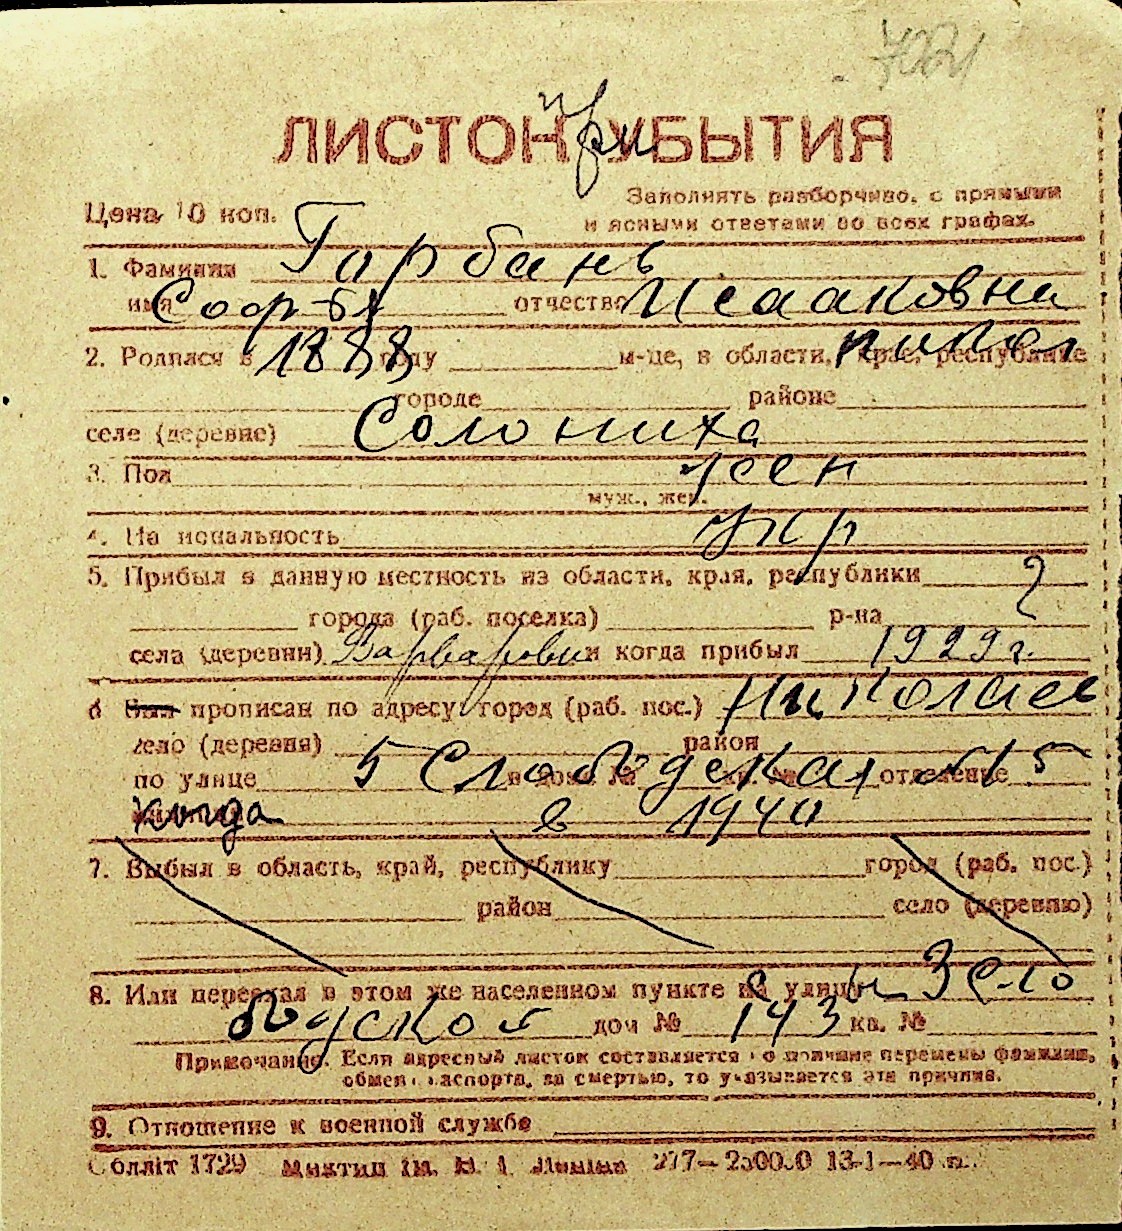 ЛИСТОК УБЫТИЯ
при
Цена 10 коп.
Заполнять разборчиво, с прямыми
и ясными ответами во всех графах.
1. Фамилия Горбань
имя Софья отчество Исааковна
2. Родился в 1888 году м-це, в области, крае, республике
городе районе
селе (деревне) Солониха
3. Пол жен
муж., жен.
4. Национальность укр
5. Прибыл в данную местность из области, края, республики
города (раб. поселка) р-на
села (деревни) Варваровки и когда прибыл 1929 г.
6 Был прописан по адресу: город (раб. пос.) Николаев
село (деревня) район
по улице 5 Слободская в доме № кв. № отделение 5
когда в 1940
7. Выбыл в область, край, республику город (раб. пос.)
район село (деревню)
8. Или переехал в этом же населенном пункте на улицу
бодской дом № 143 кв. №
Примечание. Если адресный листок составляется по причине перемены фамилии,
обмена паспорта, за смертью, то указывается эта причина.
9. Отношение к военной службе
Облліт 1729 Миктип ім. В. І. Леніна 277— 13-1—40